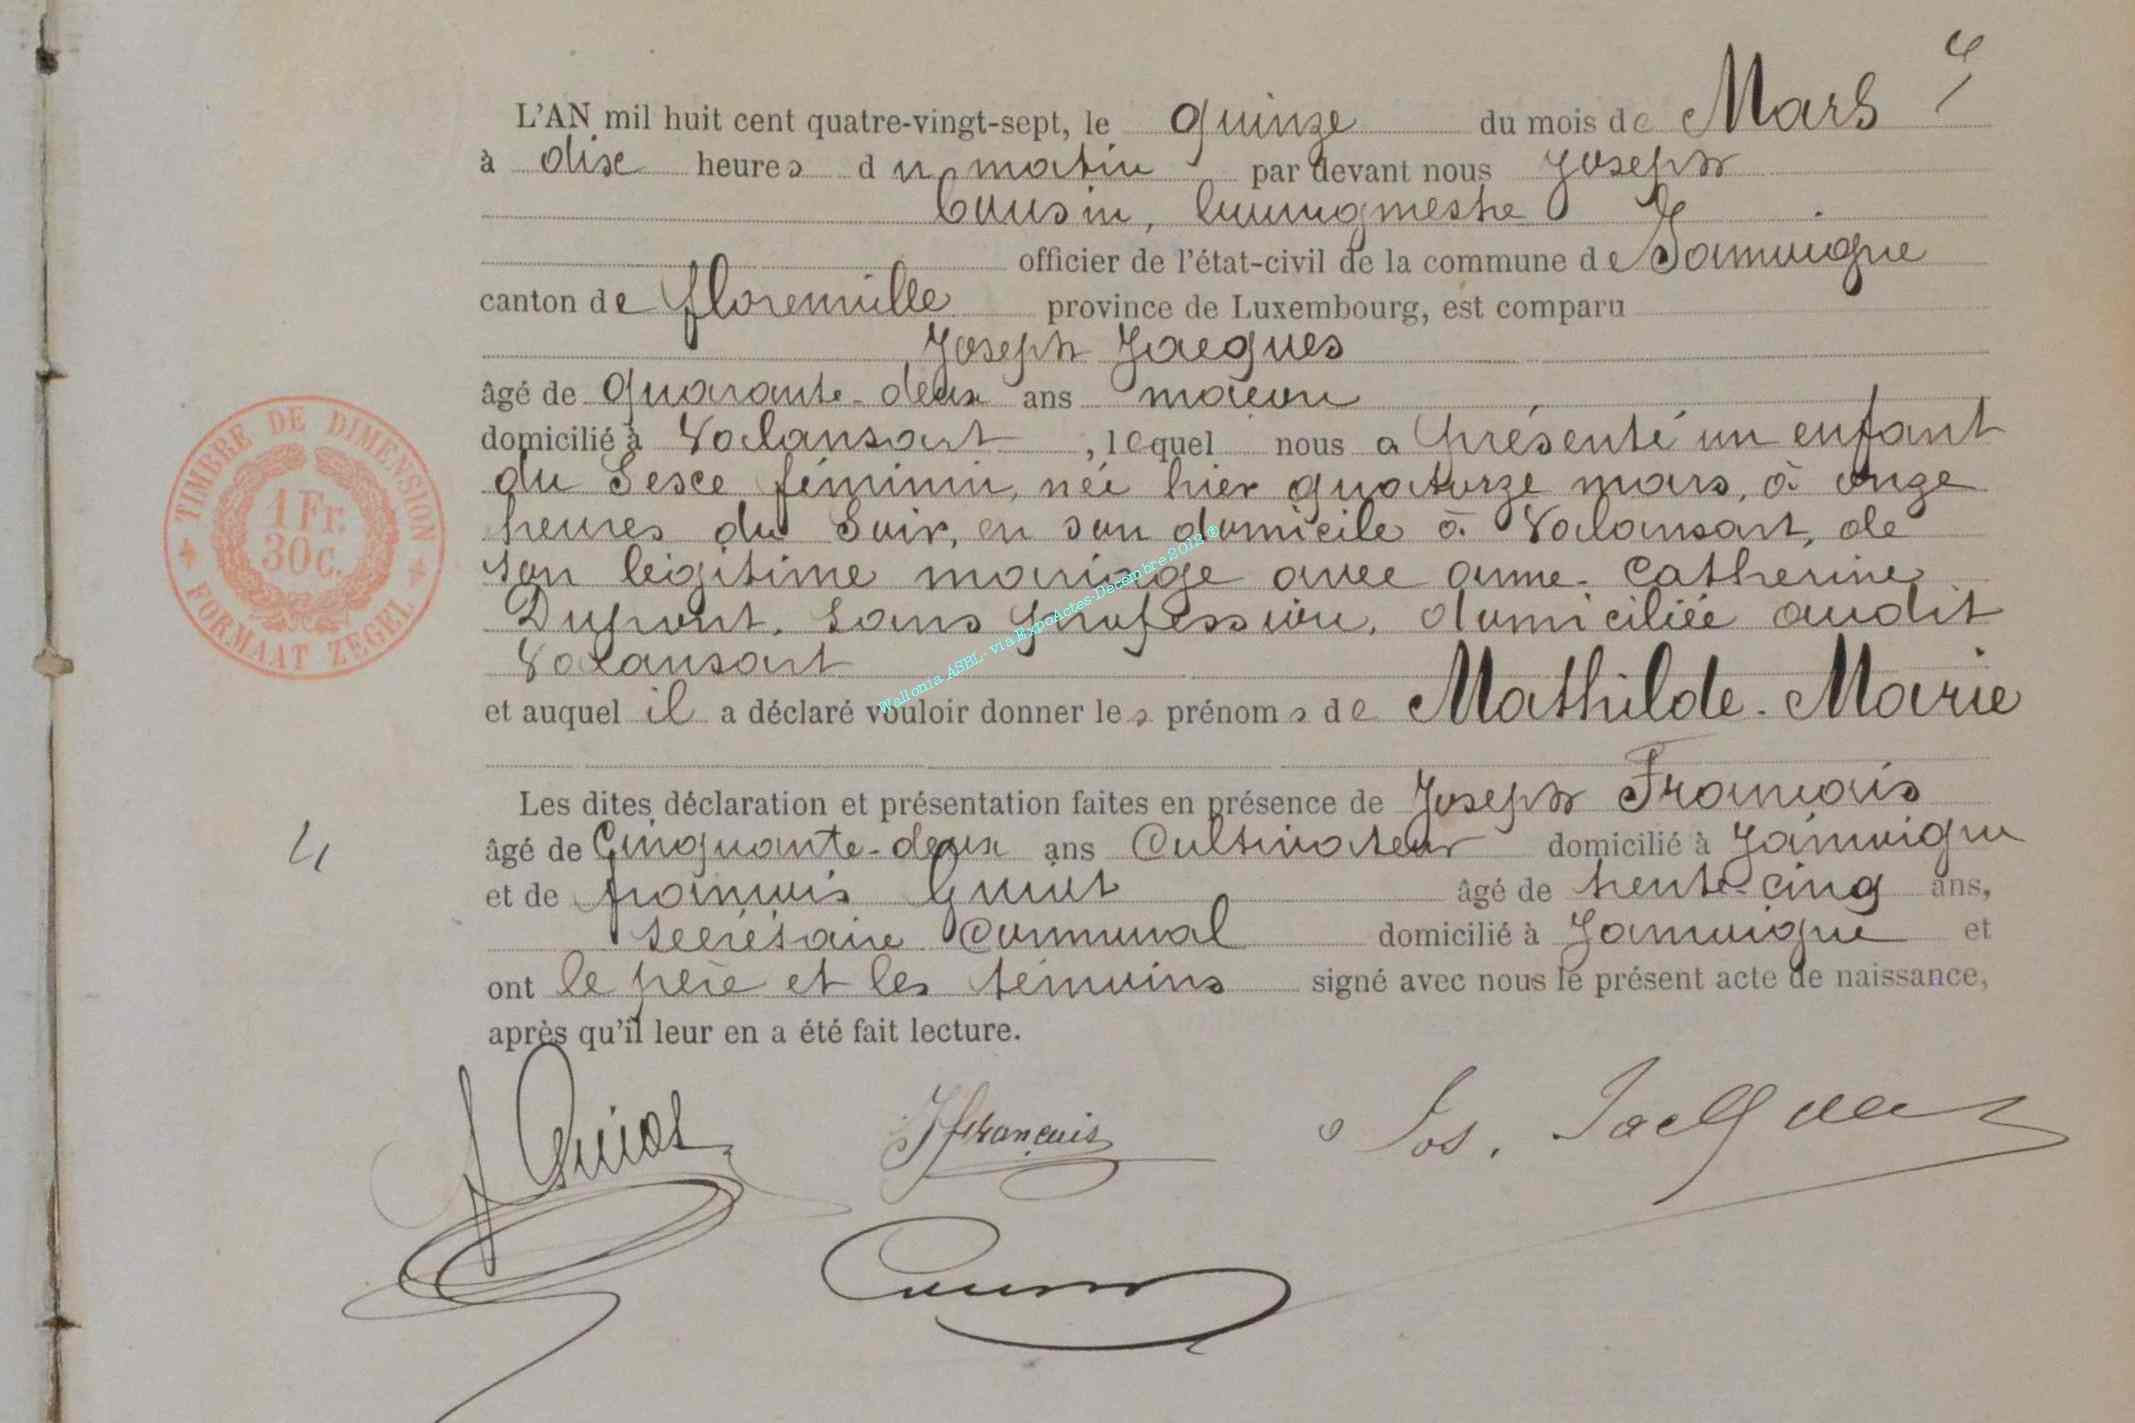 L'AN mil huit cent quatre-vingt-sept, le quinze du mois de Mars
à dix heures du matin par devant nous Joseph
Cousin, bourgmestre
officier de l'état-civil de la commune de Jamoigne
canton de florenville province de Luxembourg, est comparu
Joseph Jacques
âgé de quarante-deux ans maçon
domicilié à Valansart, lequel nous a présenté un enfant
du Sexe féminin, née hier quatorze mars, à onze
heures du Soir, en son domicile à Valansart, de
son légitime mariage avec anne-Catherine
Dupont, sans profession, domiciliée audit
Valansart
et auquel il a déclaré vouloir donner les prénoms de Mathilde-Marie
Les dites déclaration et présentation faites en présence de Joseph François
âgé de Cinquante-deux ans Cultivateur domicilié à Jamoigne
et de françois Guiot âgé de trente-cinq ans,
secrétaire Communal domicilié à Jamoigne et
ont le père et les témoins signé avec nous le présent acte de naissance,
après qu'il leur en a été fait lecture.
TIMBRE DE DIMENSION
1 Fr.
30 c.
FORMAAT ZEGEL
4
Wallonia ASBL- via ExpoActes-Décembre 2012 ®
Guiot
J françois
Jos. Jacques
Cousin